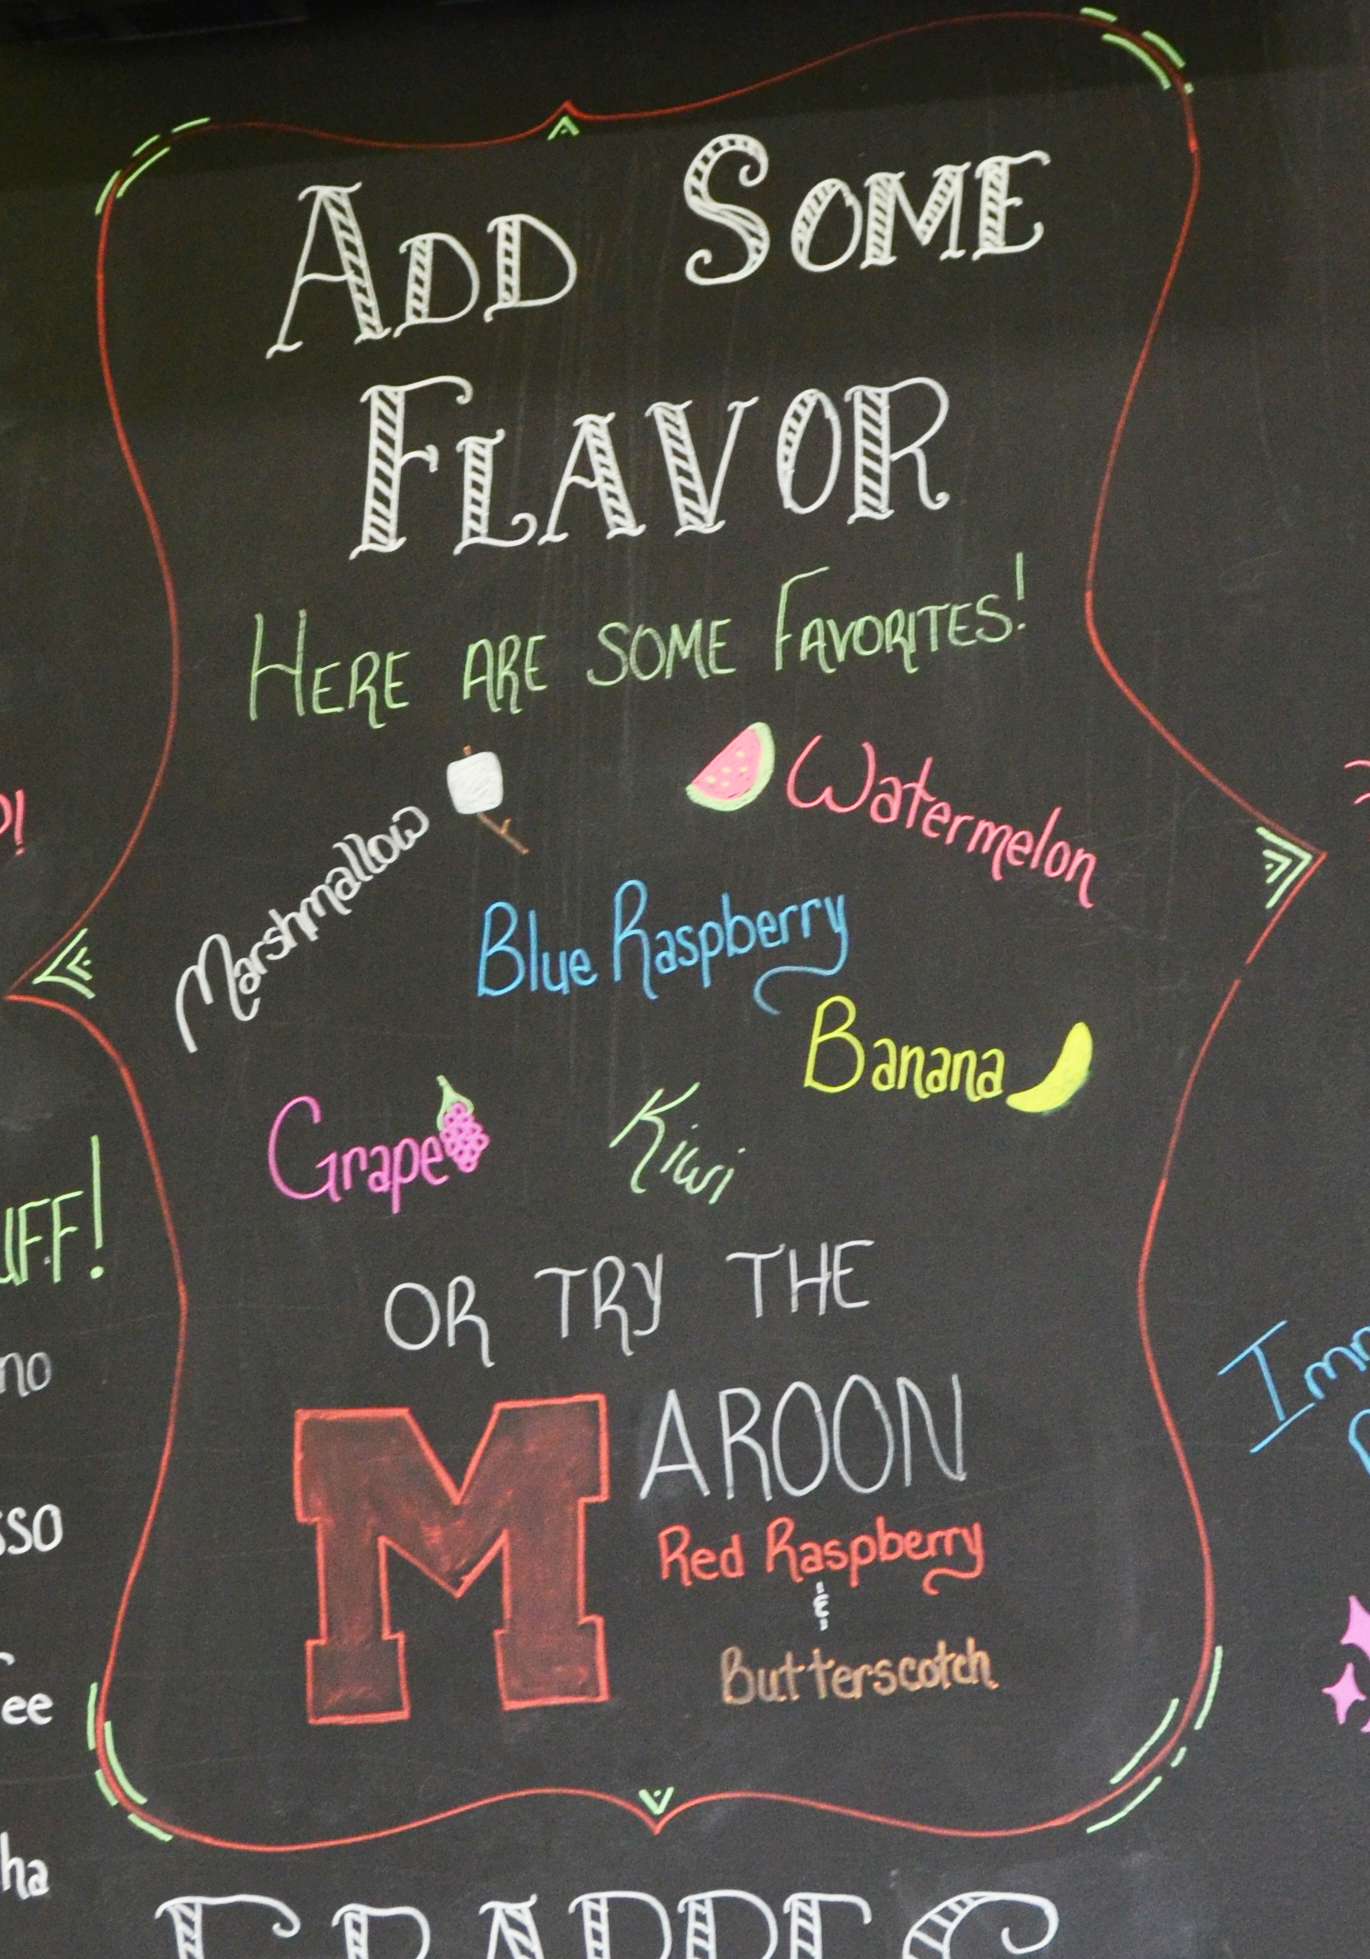 ADD SOME
FLAVOR
HERE ARE SOME FAVORITES!
Marshmallow
Watermelon
Blue Raspberry
Banana
Grape
Kiwi
OR TRY THE
MAROON
Red Raspberry
&
Butterscotch
FRAPPES